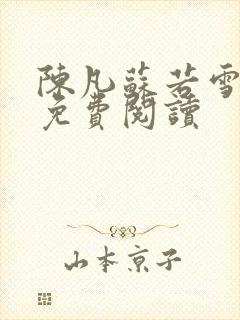 陳凡蘇若雪
免費閱讀
山本京子